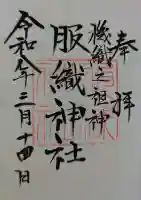 奉拝
機織之祖神
服織神社
令和八年三月十四日